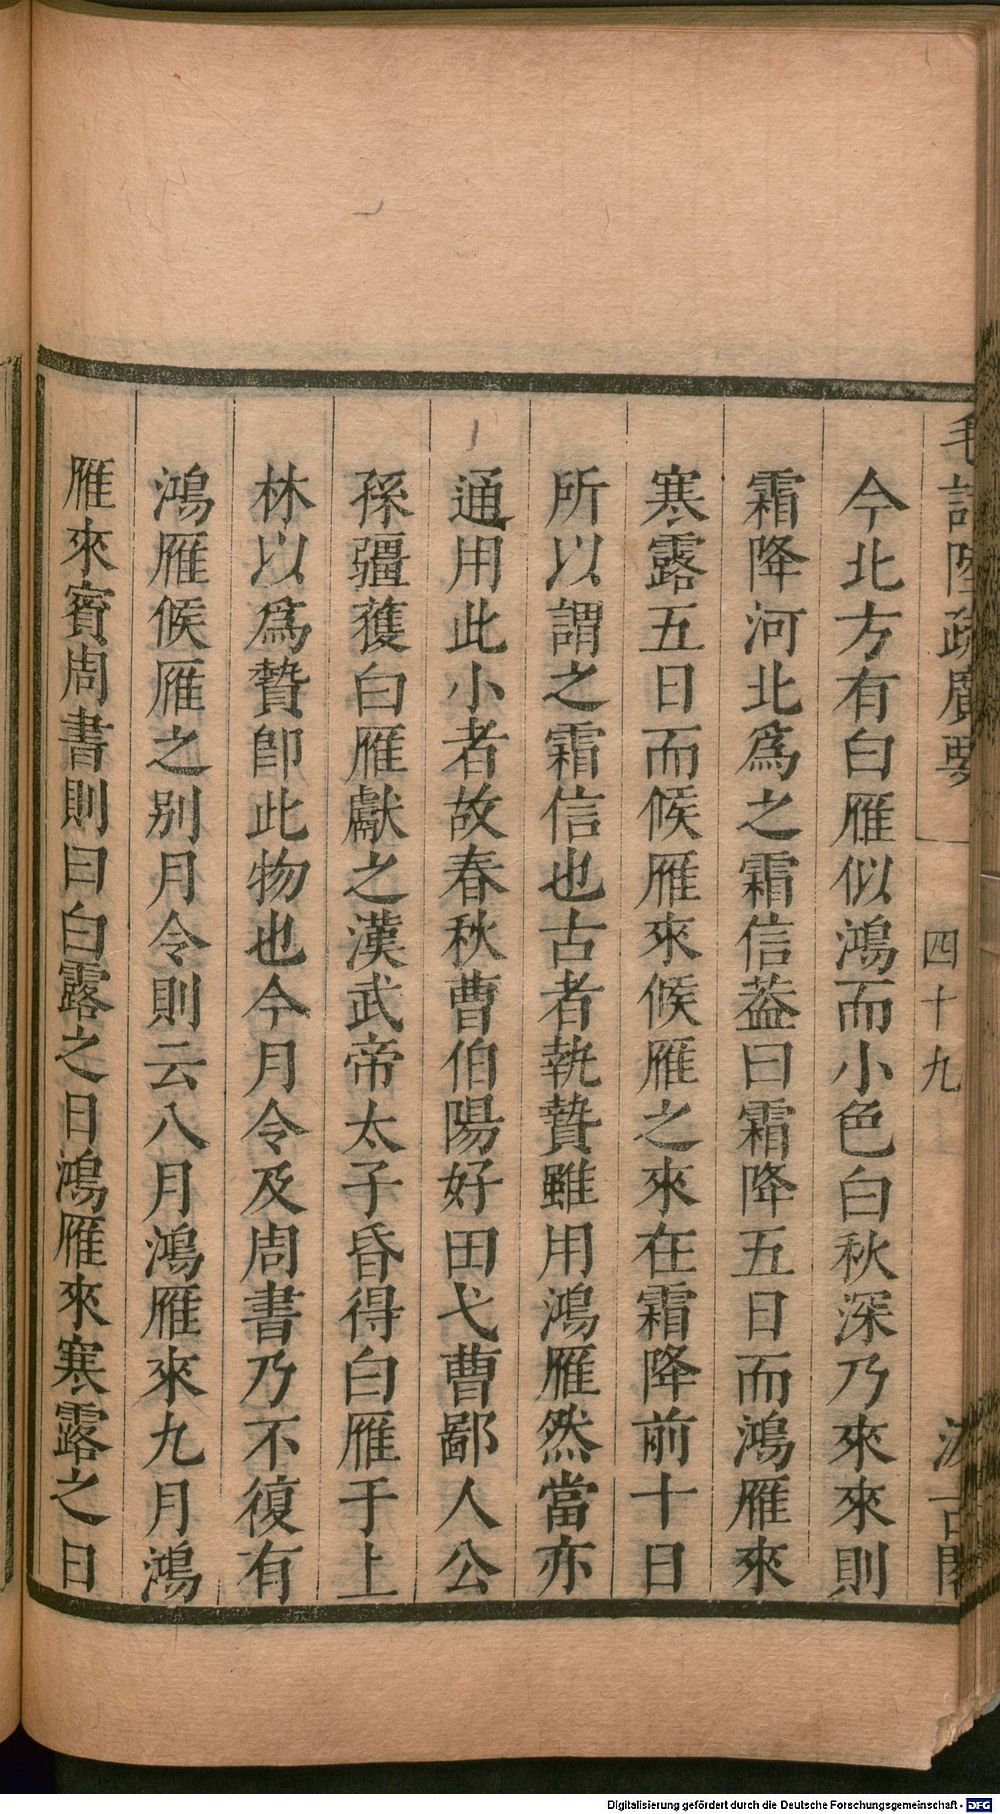 毛詩陸疏廣要
四十九
汲古閣
今北方有白雁似鴻而小色白秋深乃來來則
霜降河北爲之霜信葢曰霜降五日而鴻雁來
寒露五日而候雁來候雁之來在霜降前十日
所以謂之霜信也古者執贄雖用鴻雁然當亦
通用此小者故春秋曹伯陽好田弋曹鄙人公
孫疆獲白雁獻之漢武帝太子昏得白雁于上
林以爲贄卽此物也今月令及周書乃不復有
鴻雁候雁之别月令則云八月鴻雁來九月鴻
雁來賓周書則曰白露之日鴻雁來寒露之日
Digitalisierung gefördert durch die Deutsche Forschungsgemeinschaft - DFG